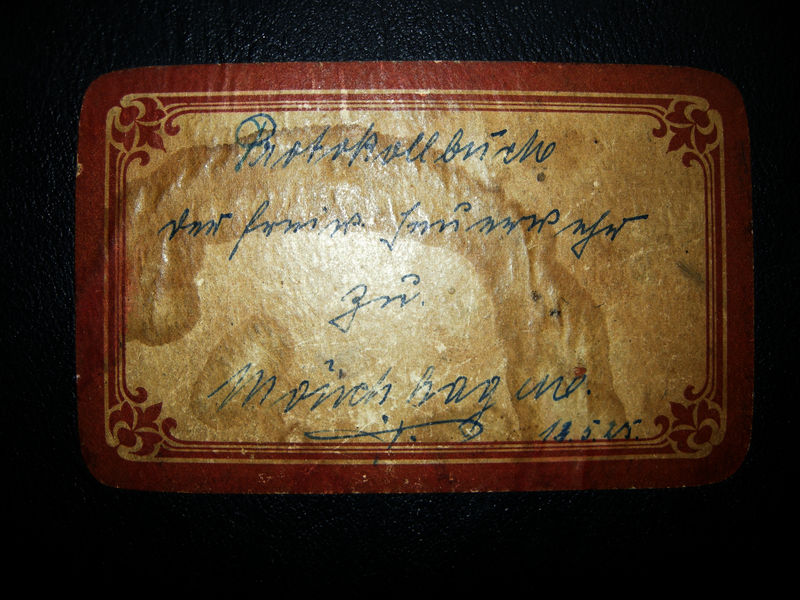 Protokollbuch
der freiw. Feuerwehr
zu.
Mönchhagen.